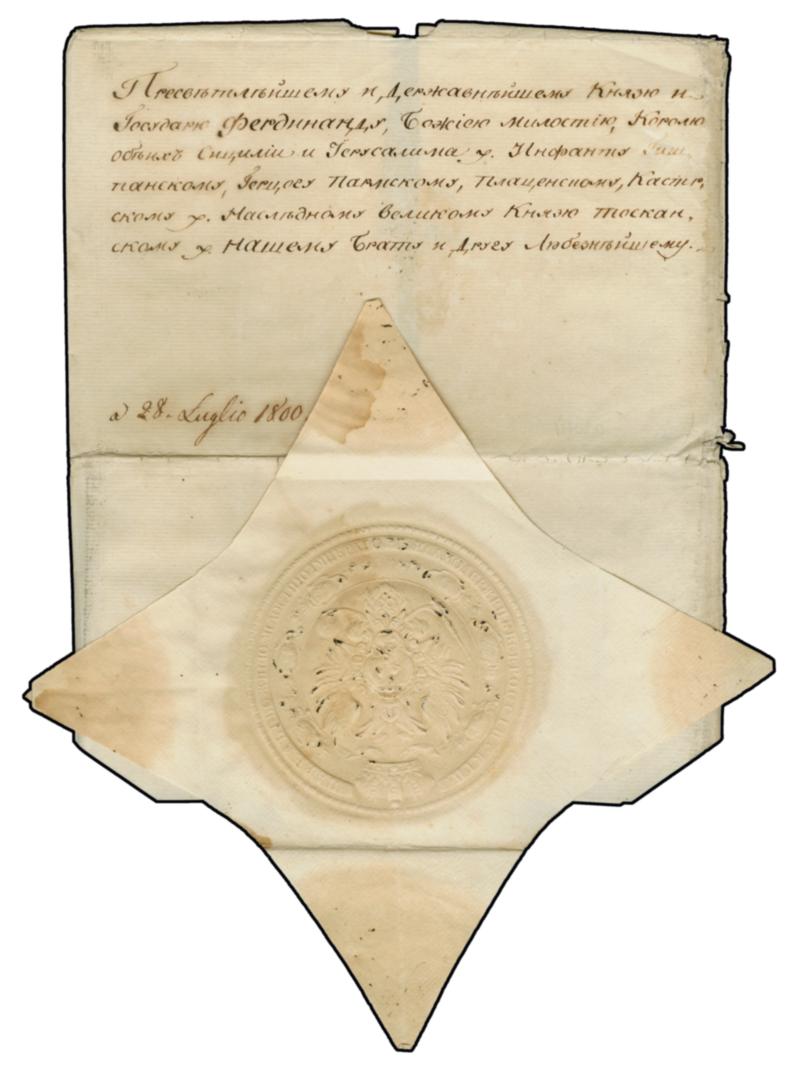 Пресвѣтлѣйшему и Державнѣйшему Князю и
Государю Фердинанду, Божіею милостію, Королю
обѣихъ Сициліи и Іерусалима &. Инфанту Гиш,
панскому, Герцогу Пармскому, Плаценскому, Кастр,
скому &. Наслѣдному Великому Князю Тоскан,
скому & Нашему Брату и Другу Любезнѣйшему.
a 28. Luglio 1800.